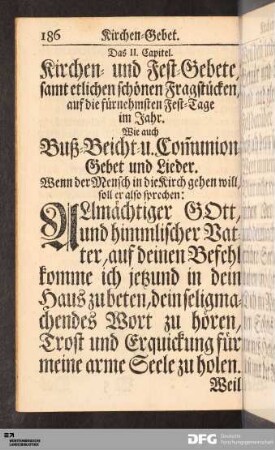 186 Kirchen-Gebet.
Das II. Capitel.
Kirchen- und Fest-Gebete,
samt etlichen schönen Fragstücken,
auf die fürnehmsten Fest-Tage
im Jahr.
Wie auch
Buß-Beicht-u. Com̃union
Gebet und Lieder.
Wenn der Mensch in die Kirch gehen will,
soll er also sprechen:
ALlmächtiger GOtt,
und himmlischer Vat-
ter, auf deinen Befehl
komme ich jetzund in dein
Haus zu beten, dein seligma-
chendes Wort zu hören,
Trost und Erquickung für
meine arme Seele zu holen.
Weil
DFG Deutsche
Forschungsgemeinschaft